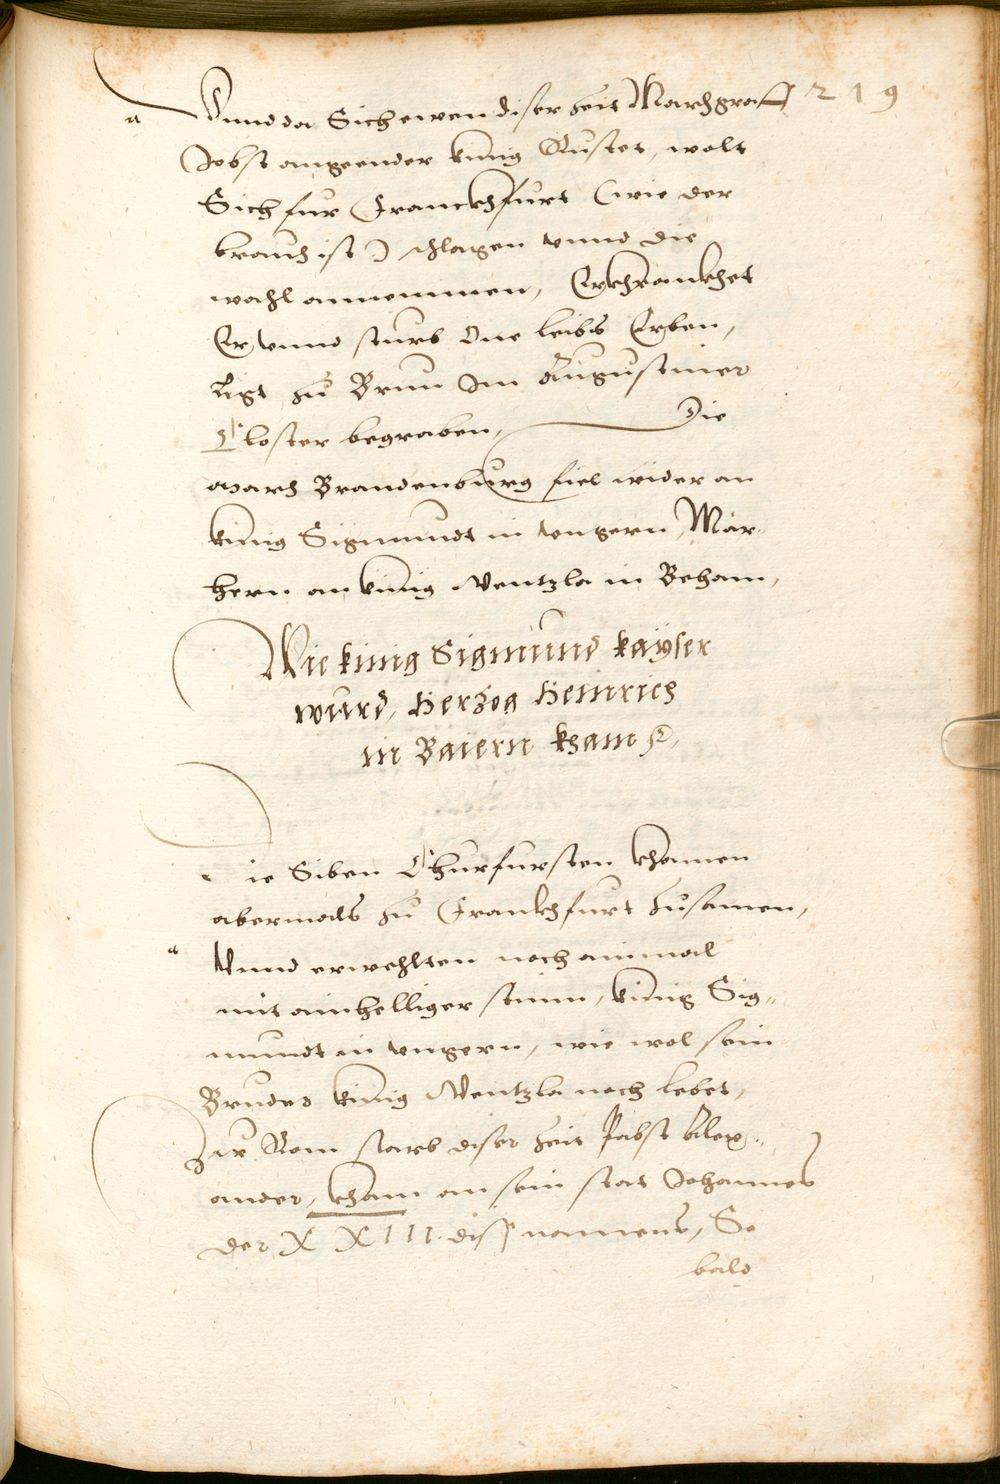 219
Vnnd da Sich ewen diser zeit Marchgraff
Jobst angeender künig Rüstet, wolt
Sich fur Franckhfurt (wie der
brauch ist) schlagen vnnd die
wahl annemmen, Erkhrankhet
Er vnnd sturb One leibs Erben,
ligt zu Brun Im Augustiner
Closter begraben, Die
March Brandenburg fiel wider an
künig Sigmundt in vngern, Mär-
hern an künig Wentzla in Beham,
Wie künig Sigmund kayser
wurd, Herzog Heinrich
in Baiern kham
ie Siben Churfursten khamen
abermals zu Frankhfurt zusamen,
Vnnd erwehlten noch ainmal
mit ainhelliger stimm, künig Sig-
mundt in vngern, wie wol sein
Bruder künig Wentzla noch lebet,
Zu Rom starb diser zeit Pabst Alex-
ander, kham an sein stat Johannes
der XXIII. diß namens, So
bald